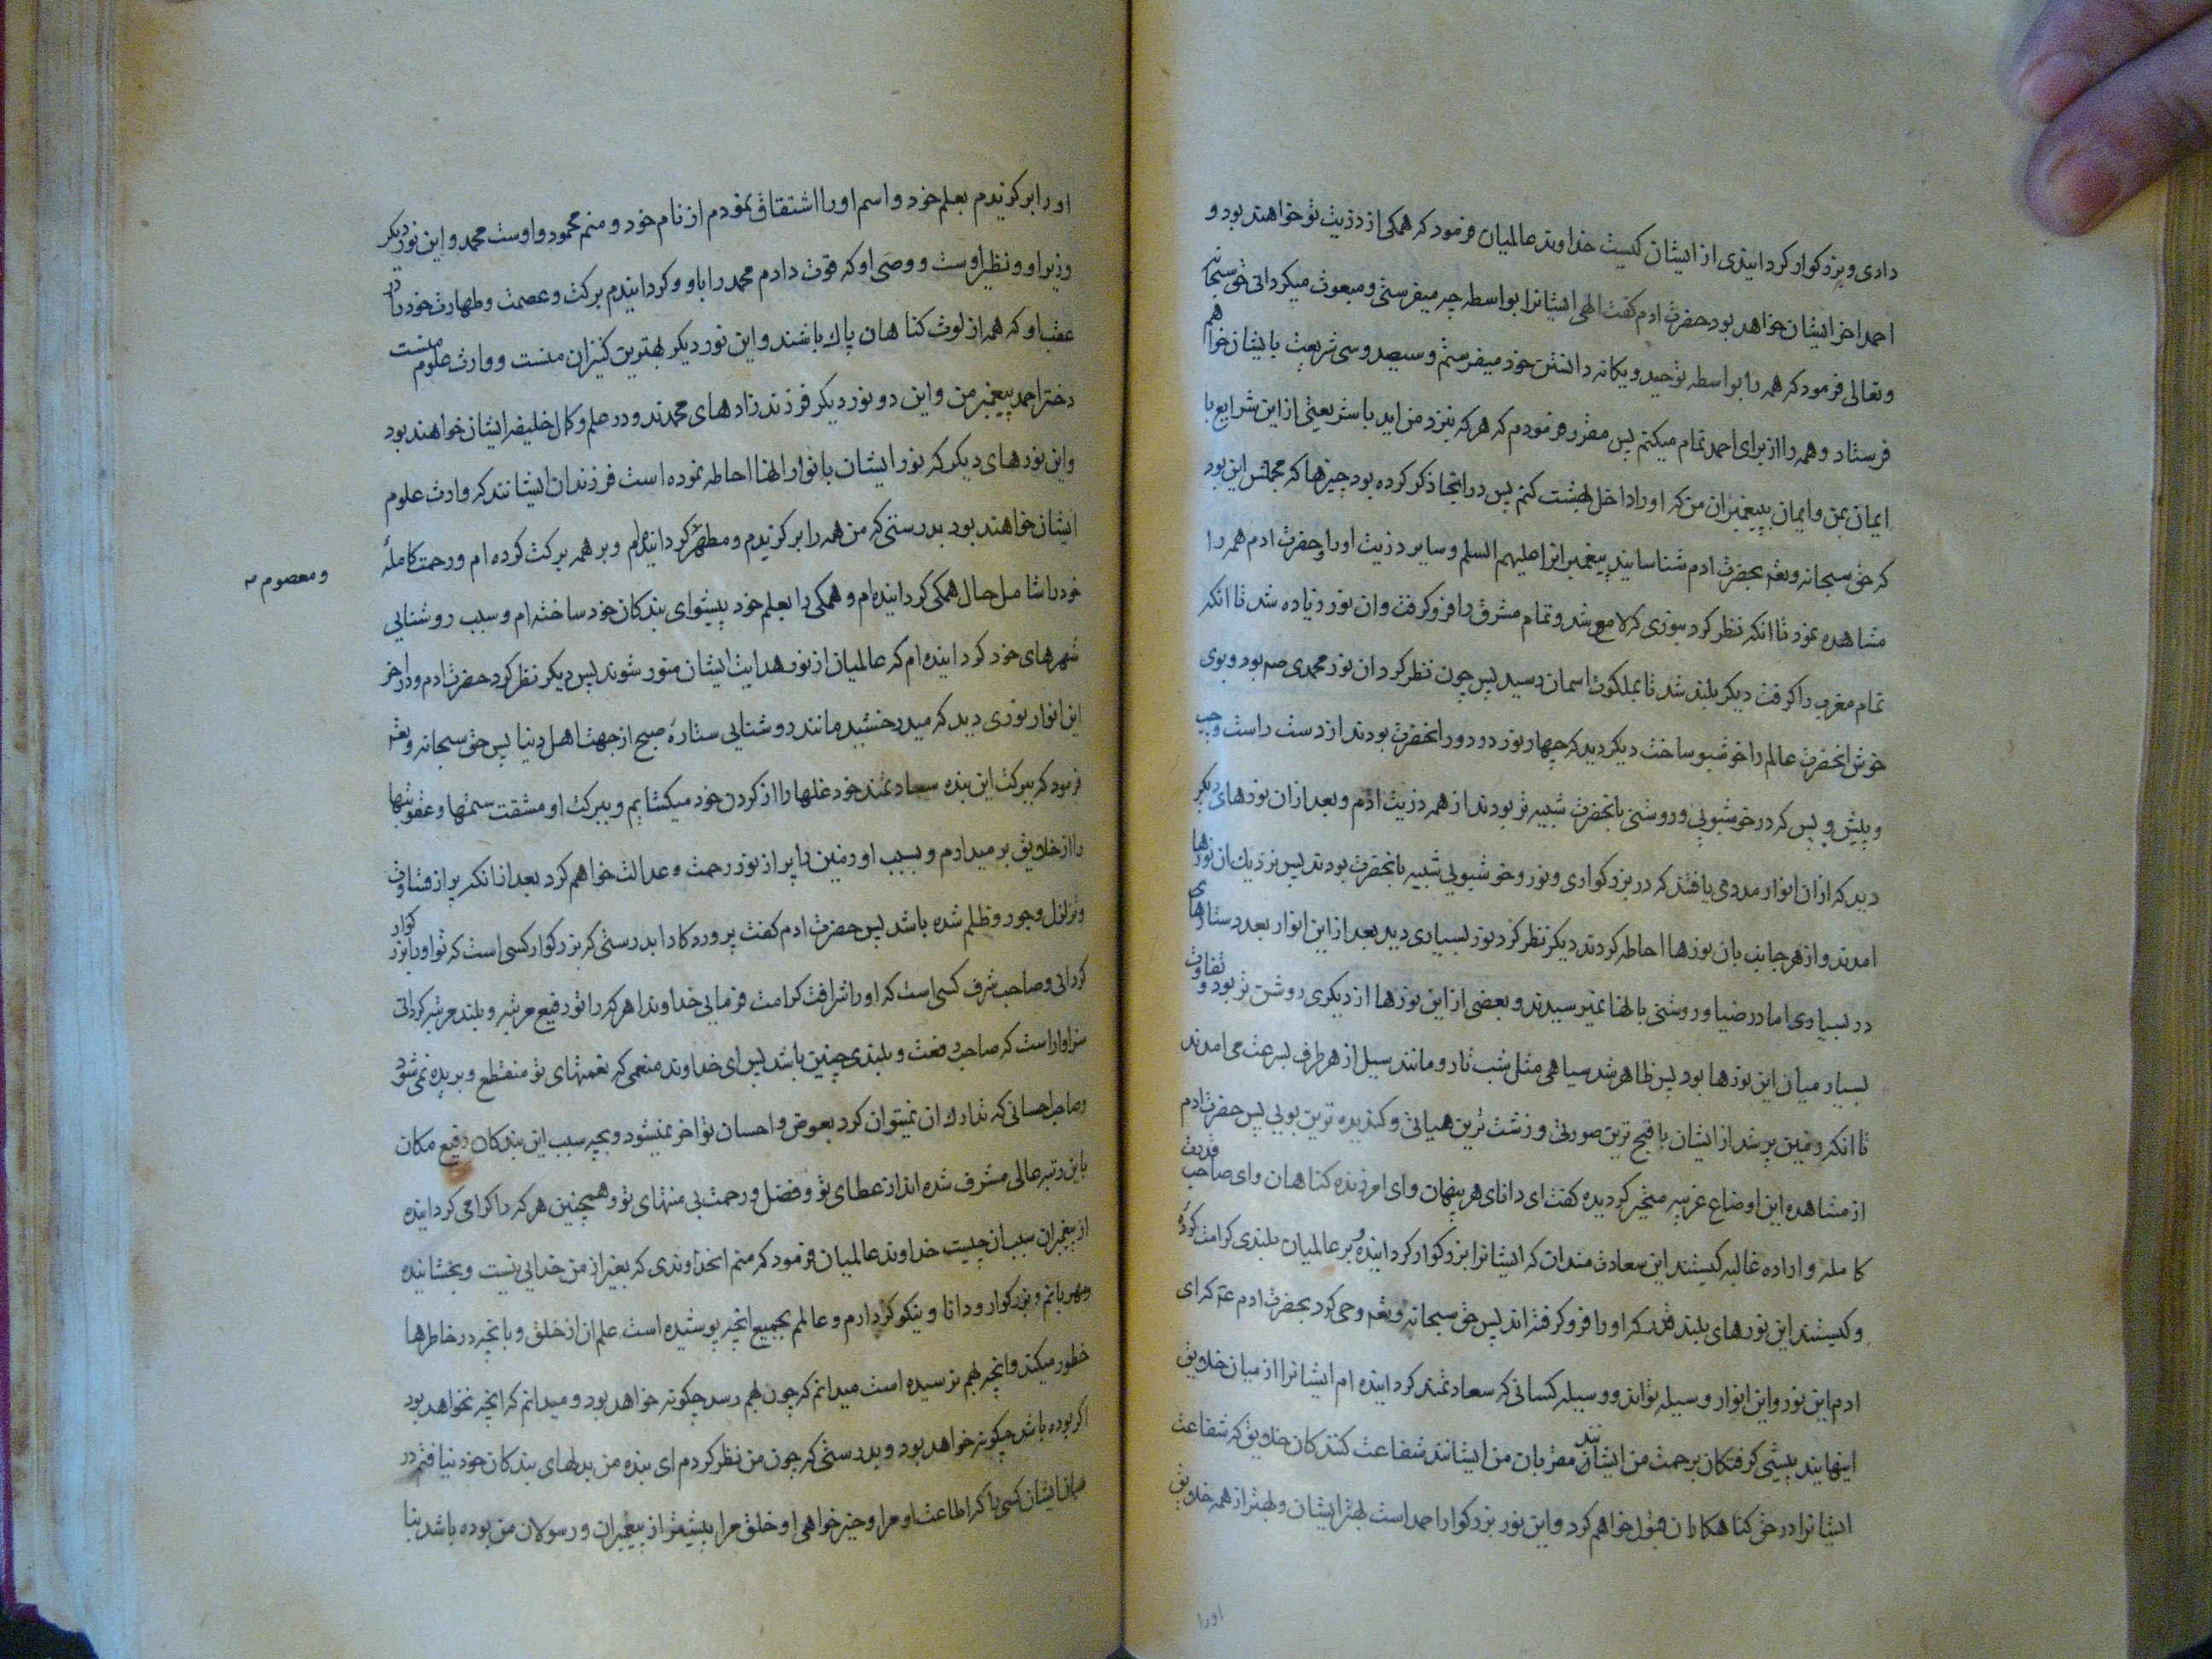 دادی و بزرکوار کردانیدی از ایشان کیست خداوند عالمیان فرمود که همکی از ذریت تو خواهند بود و
احمد اخر ایشان خواهد بود حضرت ادم کفت الهی ایشانرا بواسطه چه میفرستی و مبعوث میکردانی حق سبحانه
و تعالی فرمود که همه را بواسطه توحید و یکانه دانستن خود میفرستم و سیصد و سی شریعت بایشان خواهم
فرستاد و همه را از برای احمد تمام میکنم پس مقرر فرمودم که هرکه بنزد من اید با شریعتی از این شرایع با
ایمان بمن و ایمان به پیغمبران من که او را داخل بهشت کنم پس در اینجا ذکر کرده بود چیزها که مجملش این بود
که حق سبحانه وتعـ بحضرت ادم شناسانید پیغمبرانرا علیهم السلم و سایر ذریت او را و حضرت ادم همه را
مشاهده نمود تا انکه نظر کرد بنوری که لامع شد و تمام مشرق را فرو کرفت وان نور زیاده شد تا انکه
تمام مغرب را کرفت دیکر بلند شد تا بملکوت اسمان رسید پس چون نظر کرد ان نور محمدی صم بود و بوی
خوش انحضرت عالم را خوشبو ساخت دیکر دید که چهار نور در دور انحضرت بودند از دست راست و چپ
و پیش و پس که در خوشبویی و روشنی بانحضرت شبیه تر بودند از همه ذریت ادم و بعد از ان نورهای دیکر
دید که از ان انوار مددمی یافتند که در بزرکواری و نور و خوشبویی شبیه بانحضرت بودند پس نزدیك ان نورها
امدند و از هر جانب بان نورها احاطه کردند دیکر نظر کرد نور بسیاری دید بعد از این انوار بعدد ستارهای
در بسیاری اما در ضیا و روشنی بانها نمیرسیدند و بعضی از این نورها از دیکری روشن تر بود و تفاوت
بسیار میان این نورها بود پس ظاهر شد سیاهی مثل شب تار و مانند سیل از هر طرف بسرعت می امدند
تا انکه زمین پر شد از ایشان با قبیح ترین صورتی و زشت ترین هیاتی و کندیده ترین بویی پس حضرت ادم
از مشاهده این اوضاع غریبه متحیر کردیده کفت ای دانای هر پنهان و ای امرزنده کناهان و ای صاحب قدرت
کامله و اراده غالبه کیستند این سعادت مندان که ایشانرا بزرکوار کردانیده و بر عالمیان بلندی کرامت کردهٔ
و کیستند این نورهای بلند قدر که او را فرو کرفته اند پس حق سبحانه وتعـ وحی کرد بحضرت ادم عـ که ای
ادم این نور و این انوار وسیله تواند و وسیله کسانی که سعادتمند کردانیده ام ایشانرا از میان خلایق
اینهایند پیشی کرفتکان برحمت من ایشانند مقربان من ایشانند شفاعت کنندکان خلایق که شفاعت
ایشانرا در حق کناهکاران قبول خواهم کرد و این نور بزرکوار احمد است بهتر ایشان و بهتر از همه خلایق
اورا
او را برکزیدم بعلم خود و اسم او را اشتقاق نمودم از نام خود و منم محمود و اوست محمد و این نور دیکر
وزیر او و نظیر اوست و وصی او که قوت دادم محمد را باو و کردانیدم برکت و عصمت و طهارت خود را در
عقب او که همه از لوث کناهان پاك باشند و این نور دیکر بهترین کنیزان منست و وارث علوم منست
دختر احمد پیغمبر من و این دو نور دیکر فرزند زادهای محمدند و در علم و کمال خلیفه ایشان خواهند بود
و این نورهای دیکر که نور ایشان بانوار انها احاطه نموده است فرزندان ایشانند که وارث علوم
ایشان خواهند بود بدرستی که من همه را برکزیدم و مطهر کردانیده‌ام و بر همه برکت کرده ام و رحمت کاملهٔ
و معصوم
خود را شامل حال همکی کردانیده ام و همکی را بعلم خود پیشوای بندکان خود ساخته ام و سبب روشنایی
شهرهای خود کردانیده ام که عالمیان از نور هدایت ایشان منور شوند پس دیکر نظر کرد حضرت ادم و در اخر
این انوار نوری دید که میدرخشید مانند روشنایی ستارهٔ صبح از جهت اهل دنیا پس حق سبحانه وتعـ
فرمود که ببرکت این بنده سعادتمند خود غلها را از کردن خود میکشایم و ببرکت او مشقت ستمها و عقوبتها
را از خلایق بر میدارم و بسبب او زمین را پر از نور رحمت و عدالت خواهم کرد بعد از انکه پر از قساوت
و تزلزل و جور و ظلم شده باشد پس حضرت ادم کفت پروردکارا بدرستی که بزرکوار کسی است که تو او را بزرکوار
کردانی و صاحب شرف کسی است که او را شرافت کرامت فرمایی خداوندا هرکه را تو رفیع مرتبه و بلند مرتبه کردانی
سزاوار است که صاحب رفعت و بلندی چنین باشد پس ای خداوند منعمی که نعمتهای تو منقطع و بریده نمی شود
و صاحب احسانی که تدارك ان نمیتوان کرد بعوض و احسان تو اخر نمیشود و بچه سبب این بندکان رفیع مکان
باین رتبه عالی مشرف شده اند از عطای تو و فضل و رحمت بی منتهای تو و همچنین هر که را کرامی کردانیده
از پیغمبران سبب ان چیست خداوند عالمیان فرمود که منم انخداوندی که بغیر از من خدایی نیست و بخشاینده
و مهربانم و بزرکوار و دانا و نیکو کردارم و عالمم بجمیع انچه پوشیده است علم ان از خلق و بانچه در خاطرها
خطور میکند و انچه بهم نرسیده است میدانم که چون بهم رسد چکونه خواهد بود و میدانم که انچه نخواهد بود
اکر بوده باشد چکونه خواهد بود و بدرستی که چون من نظر کردم ای بنده من بدلهای بندکان خود نیافتم در
میان ایشان کسی را که اطاعت او مرا و خیر خواهی او خلق مرا بیشتر از پیغمبران و رسولان من بوده باشد بنا